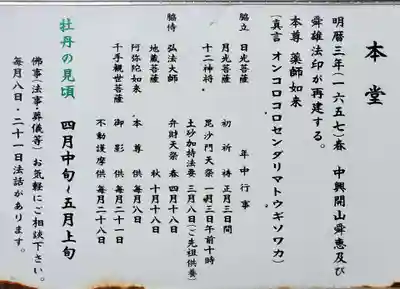 本堂
明暦三年(一六五七)春 中興開山舜恵及び
舜雄法印が再建する。
本尊 薬師如来
(真言 オンコロコロセンダリマトウギソワカ)
脇立 日光菩薩
月光菩薩
十二神将
脇侍 弘法大師
地蔵菩薩
阿弥陀如来
千手観世菩薩
年中行事
初祈祷 正月三日間
毘沙門天祭 一月三日午前十時
土砂加持法要 三月八日(ご先祖供養)
弁財天祭 春 四月十八日
秋 十月十八日
本尊供 毎月八日
御影供 毎月二十一日
不動護摩供 毎月二十八日
牡丹の見頃 四月中旬~五月上旬
佛事(法事・葬儀等)お気軽にご相談下さい。
毎月八日・二十一日法話があります。